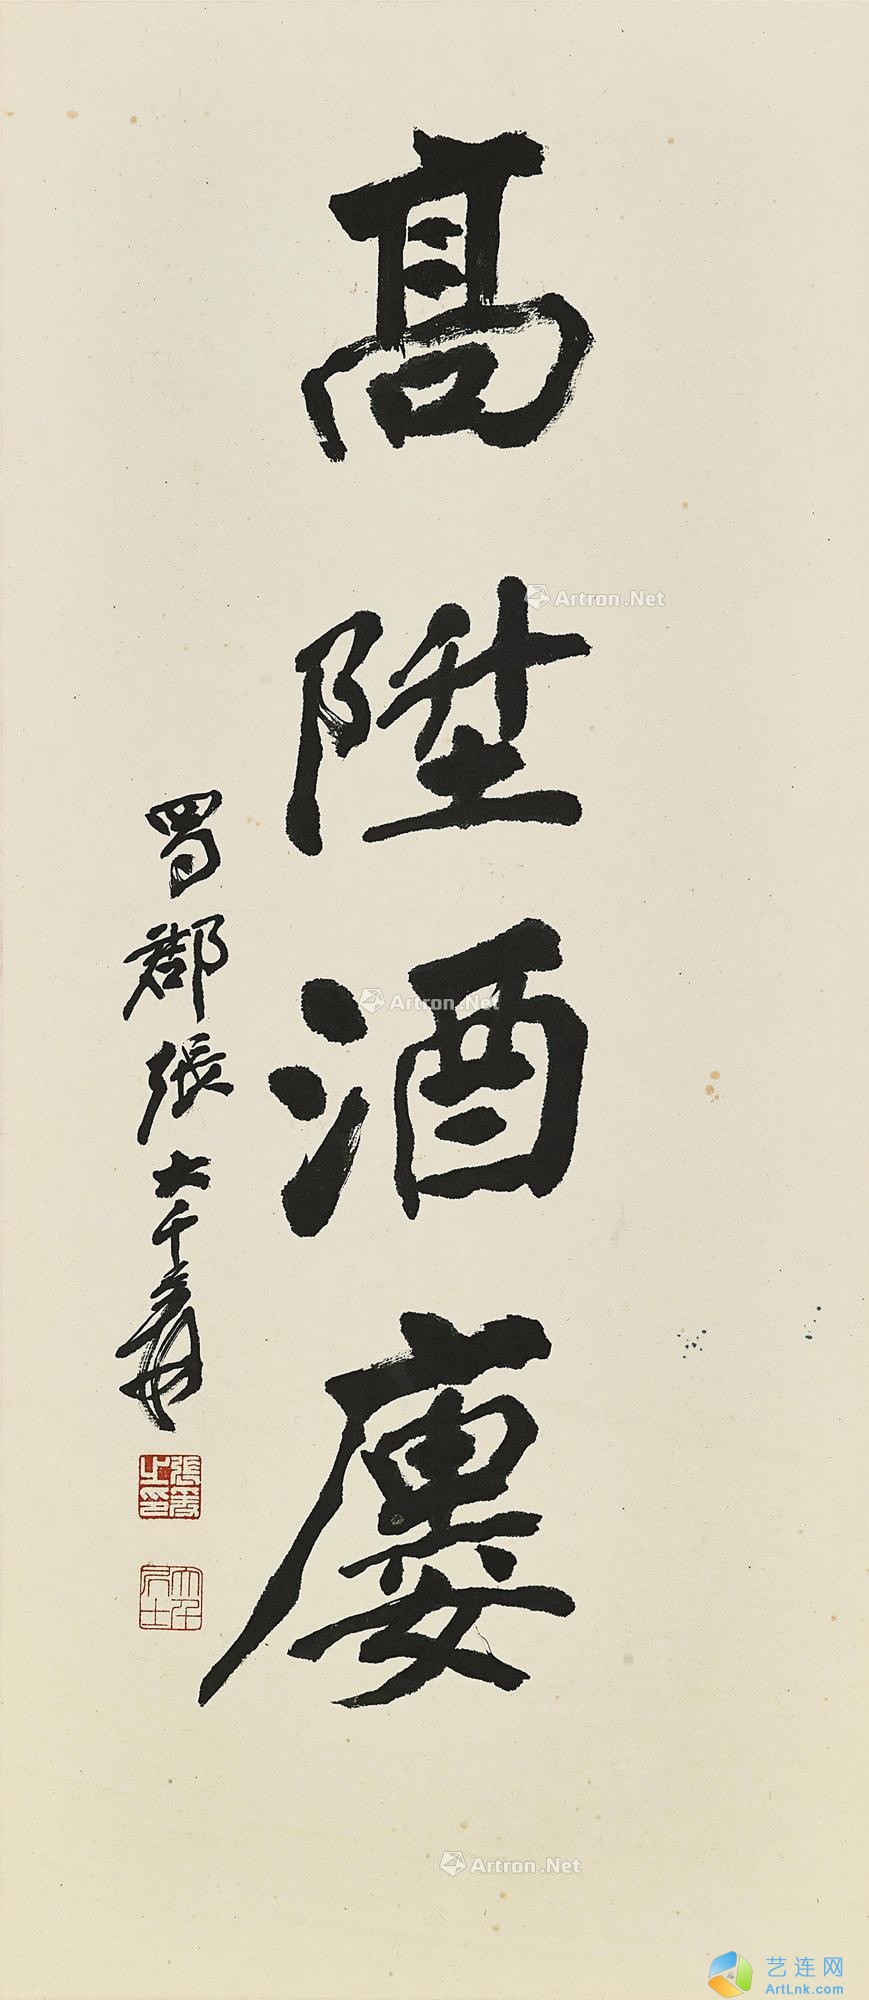 髙陞酒廔
蜀郡張大千爰
張爰之印
大千居士
Artron.Net
Artron.Net
Artron.Net
艺连网
ArtLnk.com